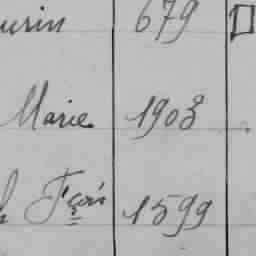 urin 679
Marie 1903
h Fçois 1599